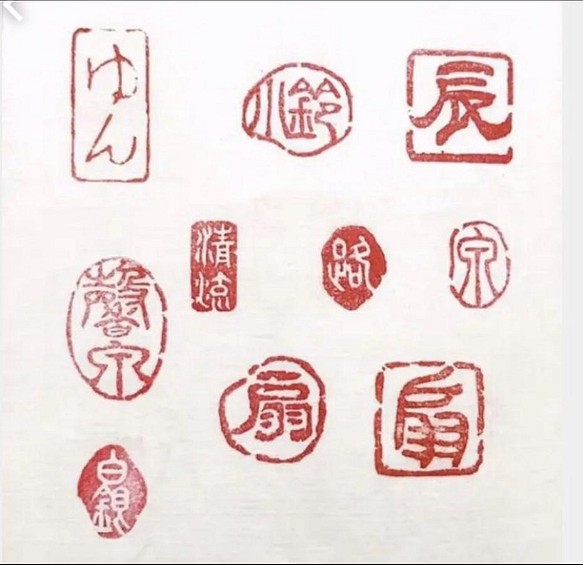 ゆん
小鈴
辰
清炫
路
宗
馨宗
扇
扇
白銀